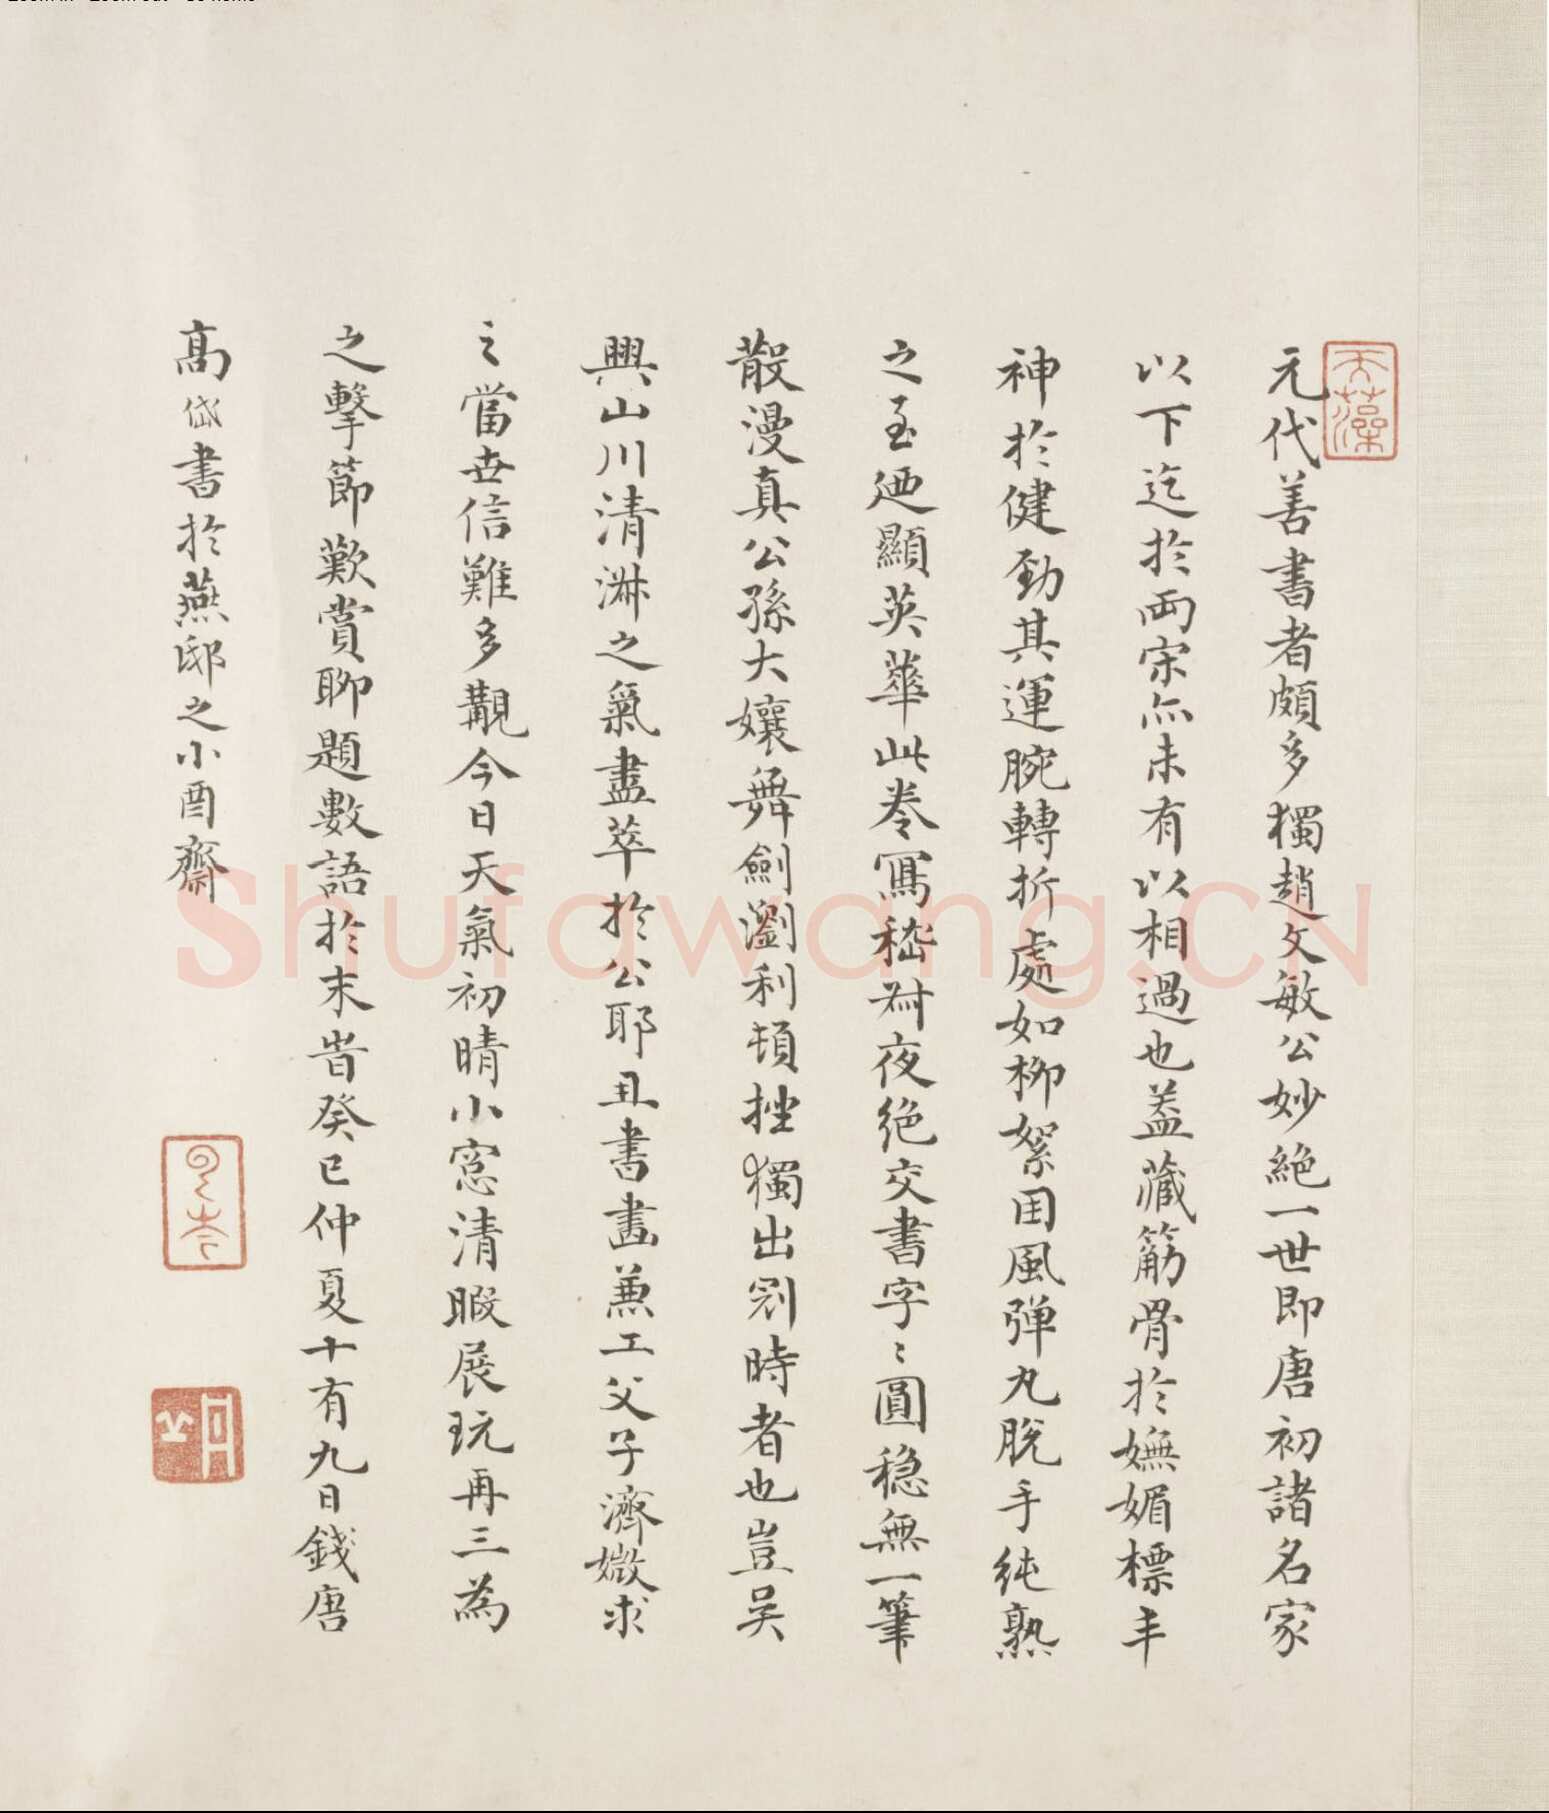 元代善書者頗多獨趙文敏公妙絶一世即唐初諸名家
以下迄於兩宋亦未有以相過也葢藏筋骨於嫵媚標丰
神於健勁其運腕轉折處如柳絮因風弹丸脱手純熟
之至迺顯英華此卷寫嵇叔夜绝交書字〻圓穏無一筆
散漫真公孫大孃舞劍瀏利頓挫獨出剏時者也豈吴
興山川清淋之氣盡萃於公耶且書畫兼工父子濟媺求
之當世信難多覯今日天氣初晴小窓清暇展玩再三為
之擊節歎賞聊題數語於末旹癸巳仲夏十有九日錢唐
高岱書於燕邸之小酉齋
天藻
Shufawang.CN